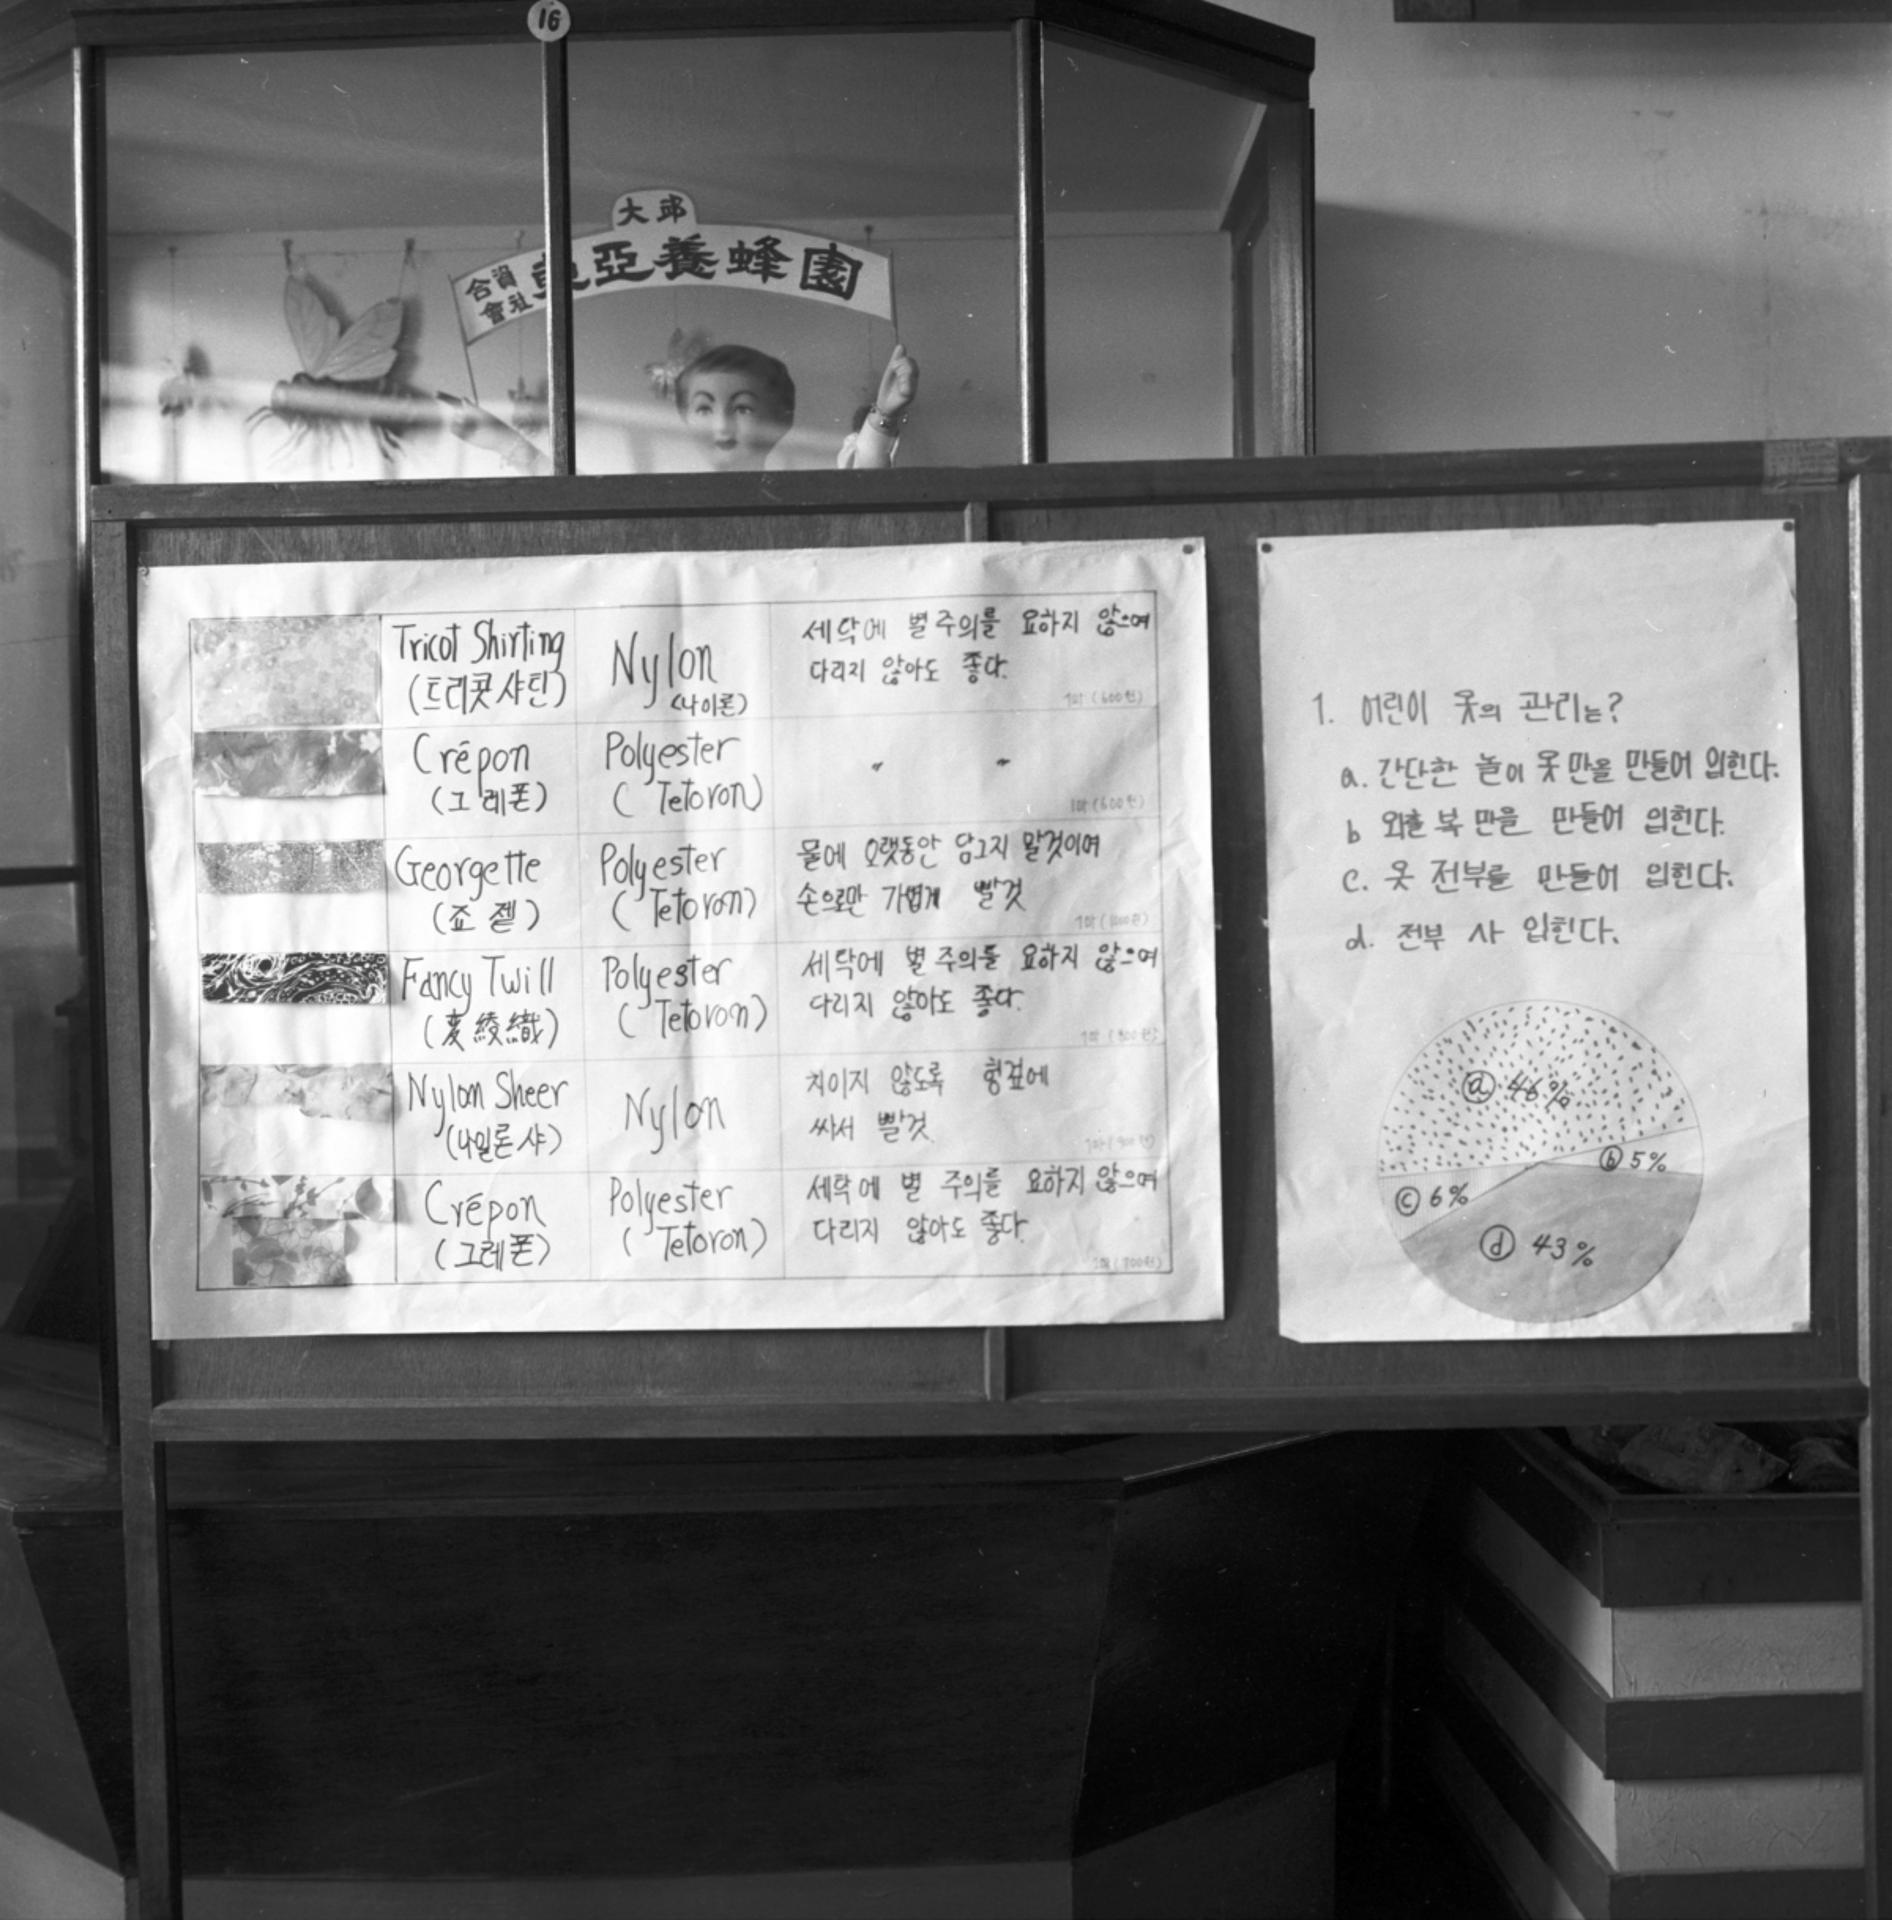 16
大邱
合資會社 東亞養蜂園
Tricot Shirting
(트리콧 샤틴)
Nylon
(나이론)
세탁에 별 주의를 요하지 않으며
다리지 않아도 좋다.
1마 (600원)
Crépon
(그레폰)
Polyester
( Tetoron)
〃 〃
1마 (600원)
Georgette
(죠젵)
Polyester
( Tetoron)
물에 오랫동안 담그지 말것이며
손으로만 가볍게 빨것
Fancy Twill
(変綾織)
Polyester
( Tetoron)
세탁에 별 주의를 요하지 않으며
다리지 않아도 좋다.
Nylon Sheer
(나일론 샤)
Nylon
치이지 않도록 헝겊에
싸서 빨것
Crépon
(그레폰)
Polyester
( Tetoron)
세탁에 별 주의를 요하지 않으며
다리지 않아도 좋다.
1마 (700원)
1. 어린이 옷의 관리는?
a. 간단한 놀이 옷 만을 만들어 입힌다.
b 외출 복 만을 만들어 입힌다.
c. 옷 전부를 만들어 입힌다.
d. 전부 사 입힌다.
ⓐ 46%
ⓑ 5%
ⓒ 6%
ⓓ 43%